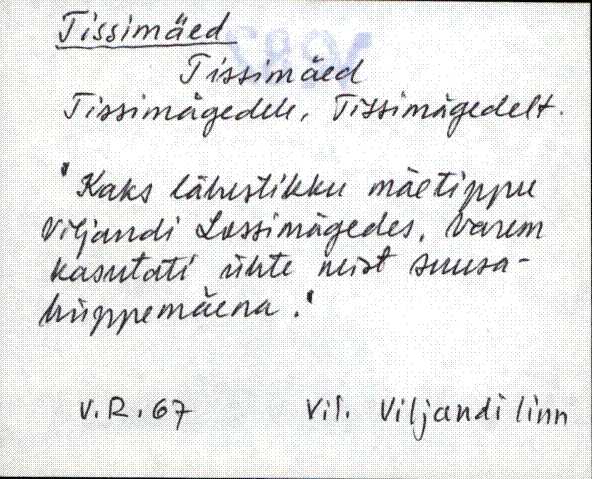 Tissimäed
Tissimäed
Tissimägedele, Tissimägedelt.
"Kaks lähestikku mäetippu
Viljandi Lossimägedes. Varem
kasutati ühte neist suusa-
hüppemäena."
V.R. 67 Vil. Viljandi linn